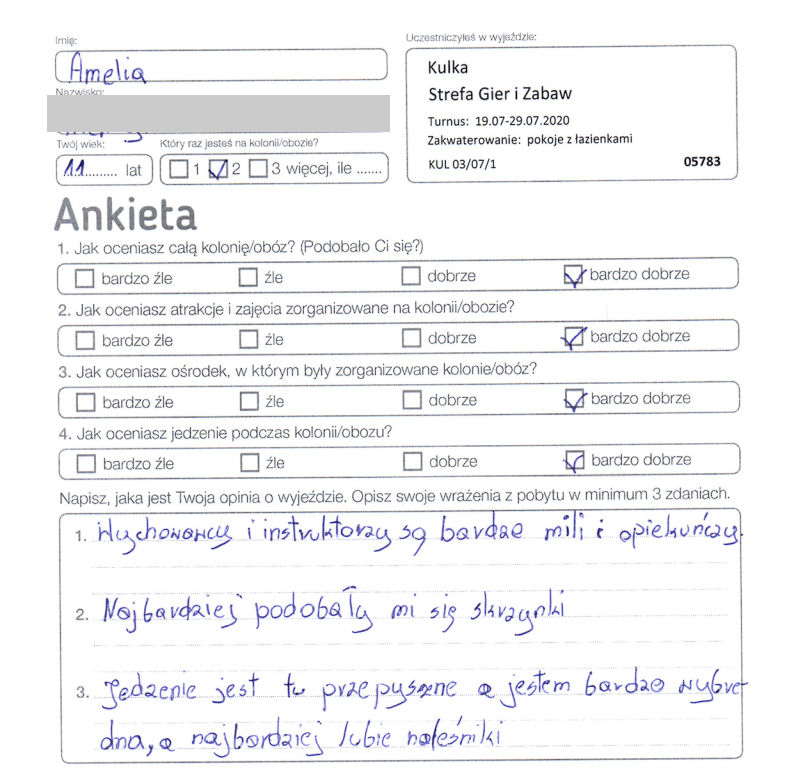 Imię:
Amelia
Nazwisko:
Twój wiek:
11......... lat
Który raz jesteś na kolonii/obozie?
1 2 3 więcej, ile .......
Uczestniczyłeś w wyjeździe:
Kulka
Strefa Gier i Zabaw
Turnus: 19.07-29.07.2020
Zakwaterowanie: pokoje z łazienkami
KUL 03/07/1 05783
Ankieta
1. Jak oceniasz całą kolonię/obóz? (Podobało Ci się?)
bardzo źle źle dobrze bardzo dobrze
2. Jak oceniasz atrakcje i zajęcia zorganizowane na kolonii/obozie?
bardzo źle źle dobrze bardzo dobrze
3. Jak oceniasz ośrodek, w którym były zorganizowane kolonie/obóz?
bardzo źle źle dobrze bardzo dobrze
4. Jak oceniasz jedzenie podczas kolonii/obozu?
bardzo źle źle dobrze bardzo dobrze
Napisz, jaka jest Twoja opinia o wyjeździe. Opisz swoje wrażenia z pobytu w minimum 3 zdaniach.
1. Wychowawcy i instruktorzy są bardzo mili i opiekuńczy.
2. Najbardziej podobały mi się skrzynki
3. Jedzenie jest tu przepyszne a jestem bardzo wybre
dna, a najbardziej lubie naleśniki